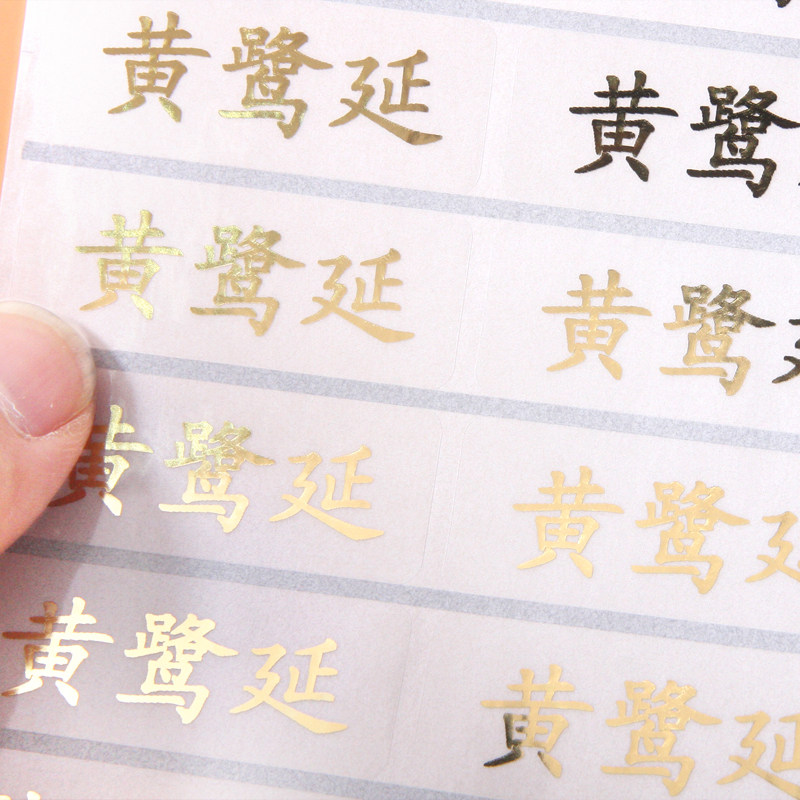 黄鹭延
黄鹭
黄鹭延
黄鹭延
黄鹭延
黄鹭延
黄鹭延
黄鹭延